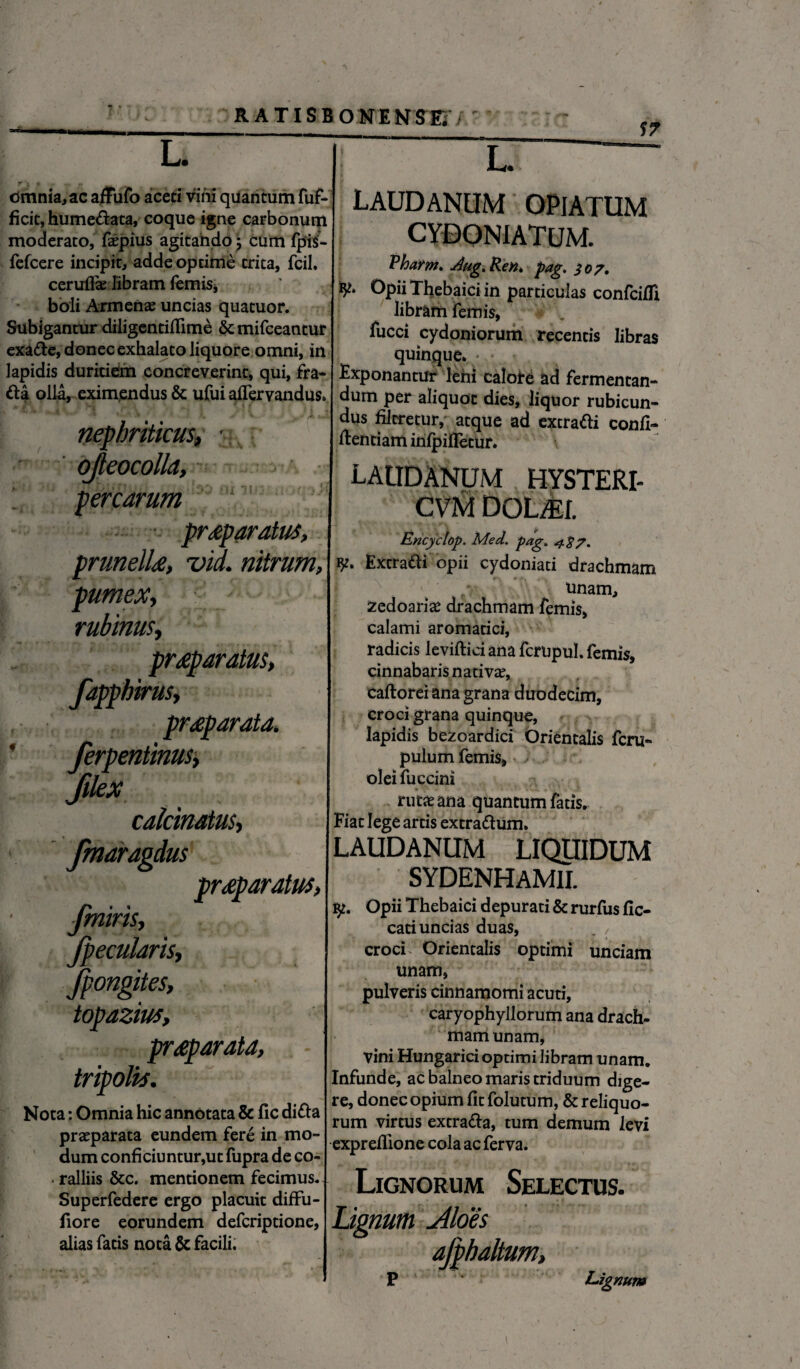 RATISBONENSE.
57
L.
omnia, ac affuso aceti vini quantum suf-
ficit, humectata, coque igne carbonum
moderato, sæpius agitando; cum spis-
sescere incipit, adde optime trita, scil.
cerussæ libram semis,
boli Armenæ uncias quatuor.
Subigantur diligentissimè & misceantur
exacte, donec exhalato liquore omni, in
lapidis duritiem concreverint, qui, fra-
cta olla, eximendus & usui asservandus.
nephriticus,
osteocolla,
percarum
præparatus,
prunellæ, vid. nitrum,
pumex,
rubinus,
præparatus,
sapphirus,
præparata.
serpentinus,
silex
calcinatus,
smaragdus
præparatus,
smiris,
specularis,
spongites,
topazius,
præparata,
tripolis.
Nota: Omnia hic annotata & sic dicta
præparata eundem ferè in mo-
dum conficiuntur, ut supra de co-
ralliis &c. mentionem fecimus.
Superfedere ergo placuit diffu-
siore eorundem descriptione,
alias satis notâ & facili.
L.
LAUDANUM OPIATUM
CYDONIATUM.
Pharm. Aug. Ren. pag. 307.
℞. Opii Thebaici in particulas conscissi
libram semis,
succi cydoniorum recentis libras
quinque.
Exponantur leni calore ad fermentan-
dum per aliquot dies, liquor rubicun-
dus filtretur, atque ad extracti consi-
stentiam inspissetur.
LAUDANUM HYSTERI-
CVM DOLÆI.
Encyclop. Med. pag. 487.
℞. Extracti opii cydoniati drachmam
unam,
zedoariæ drachmam semis,
calami aromatici,
radicis levistici ana scrupul. semis,
cinnabaris nativæ,
castorei ana grana duodecim,
croci grana quinque,
lapidis bezoardici Orientalis scru-
pulum semis,
olei succini
rutæ ana quantum satis.
Fiat lege artis extractum.
LAUDANUM LIQUIDUM
SYDENHAMII.
℞. Opii Thebaici depurati & rursus sic-
cati uncias duas,
croci Orientalis optimi unciam
unam,
pulveris cinnamomi acuti,
caryophyllorum ana drach-
mam unam,
vini Hungarici optimi libram unam.
Infunde, ac balneo maris triduum dige-
re, donec opium sit solutum, & reliquo-
rum virtus extracta, tum demum levi
expressione cola ac serva.
LIGNORUM SELECTUS.
Lignum Aloës
asphaltum,
P
Lignum